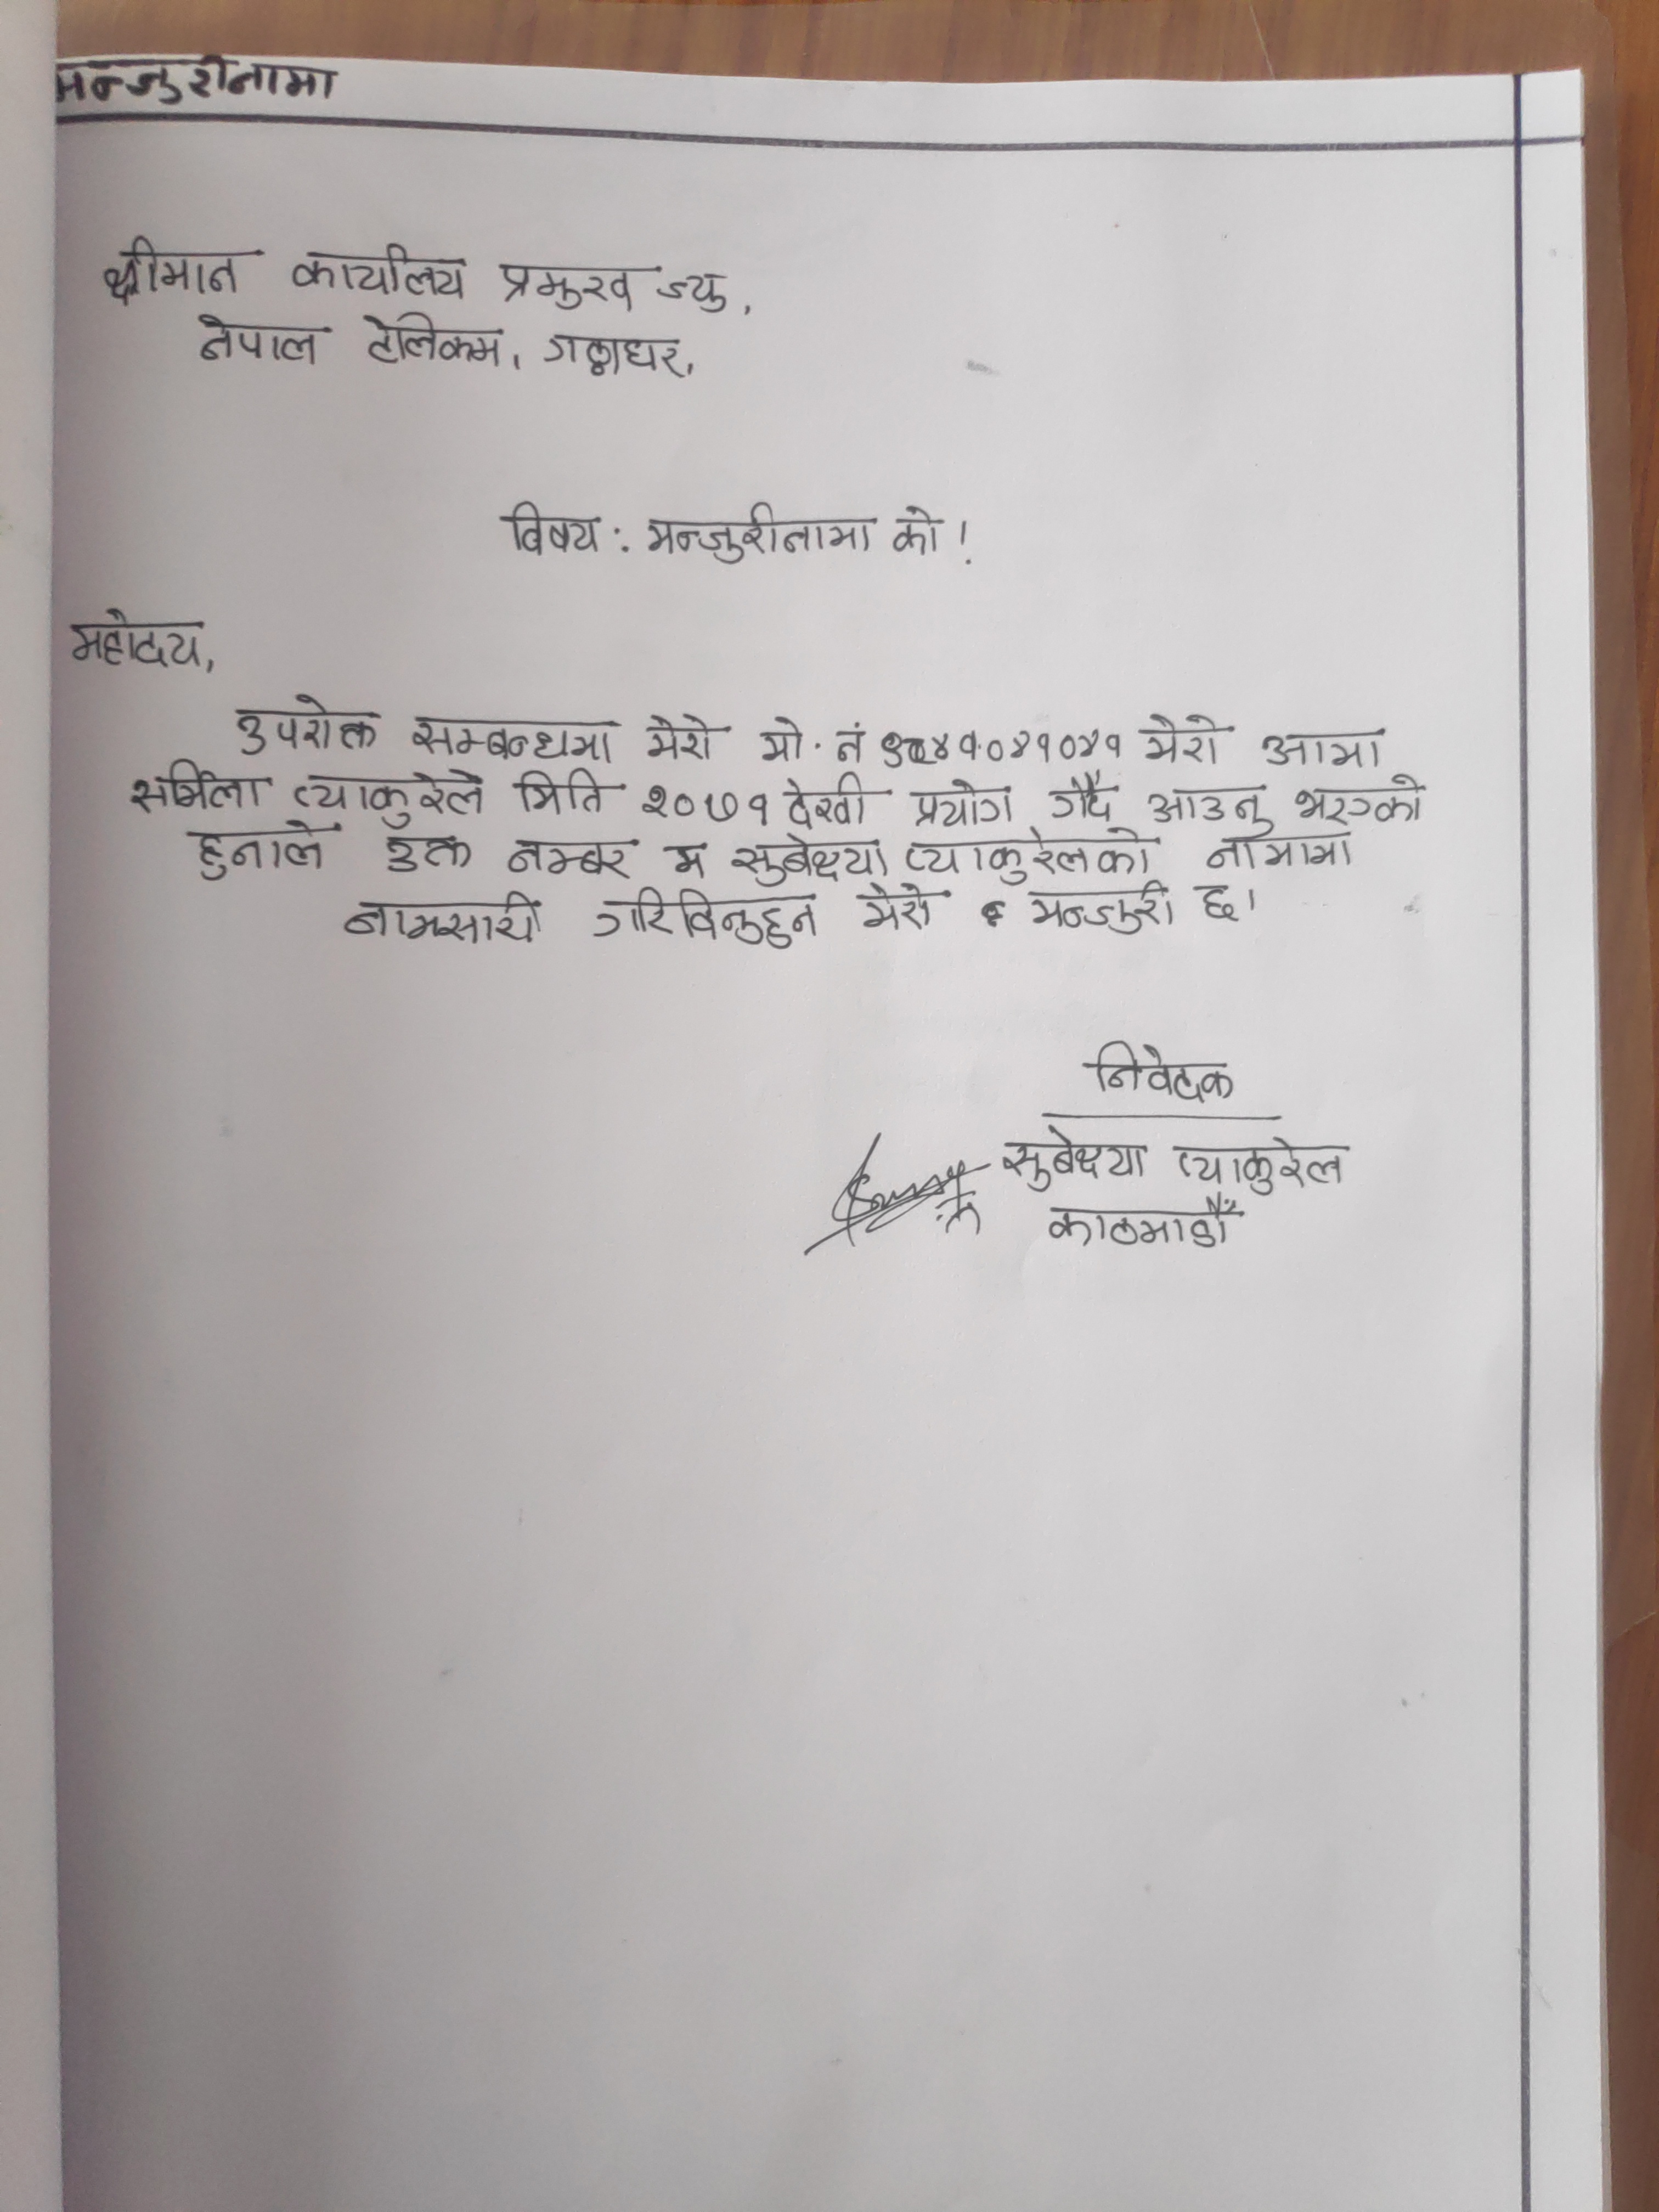 मन्जुरीनामा
श्रीमान कार्यालय प्रमुख ज्यु,
नेपाल टेलिकम, गठ्ठाघर,
बिषय : मन्जुरीनामा को !
महोदय,
उपरोक्त सम्बन्धमा मेरो मो. नं ९८४१०४१०४१ मेरो आमा
सर्मिला प्याकुरेलले मिति २०७१ देखी प्रयोग गर्दै आउनु भएको
हुनाले उक्त नम्बर म सुबेक्ष्या प्याकुरेलको नाममा
नामसारी गरिदिनुहुन मेरो मन्जुरी छ।
निवेदक
सुबेक्ष्या प्याकुरेल
काठमाडौँ